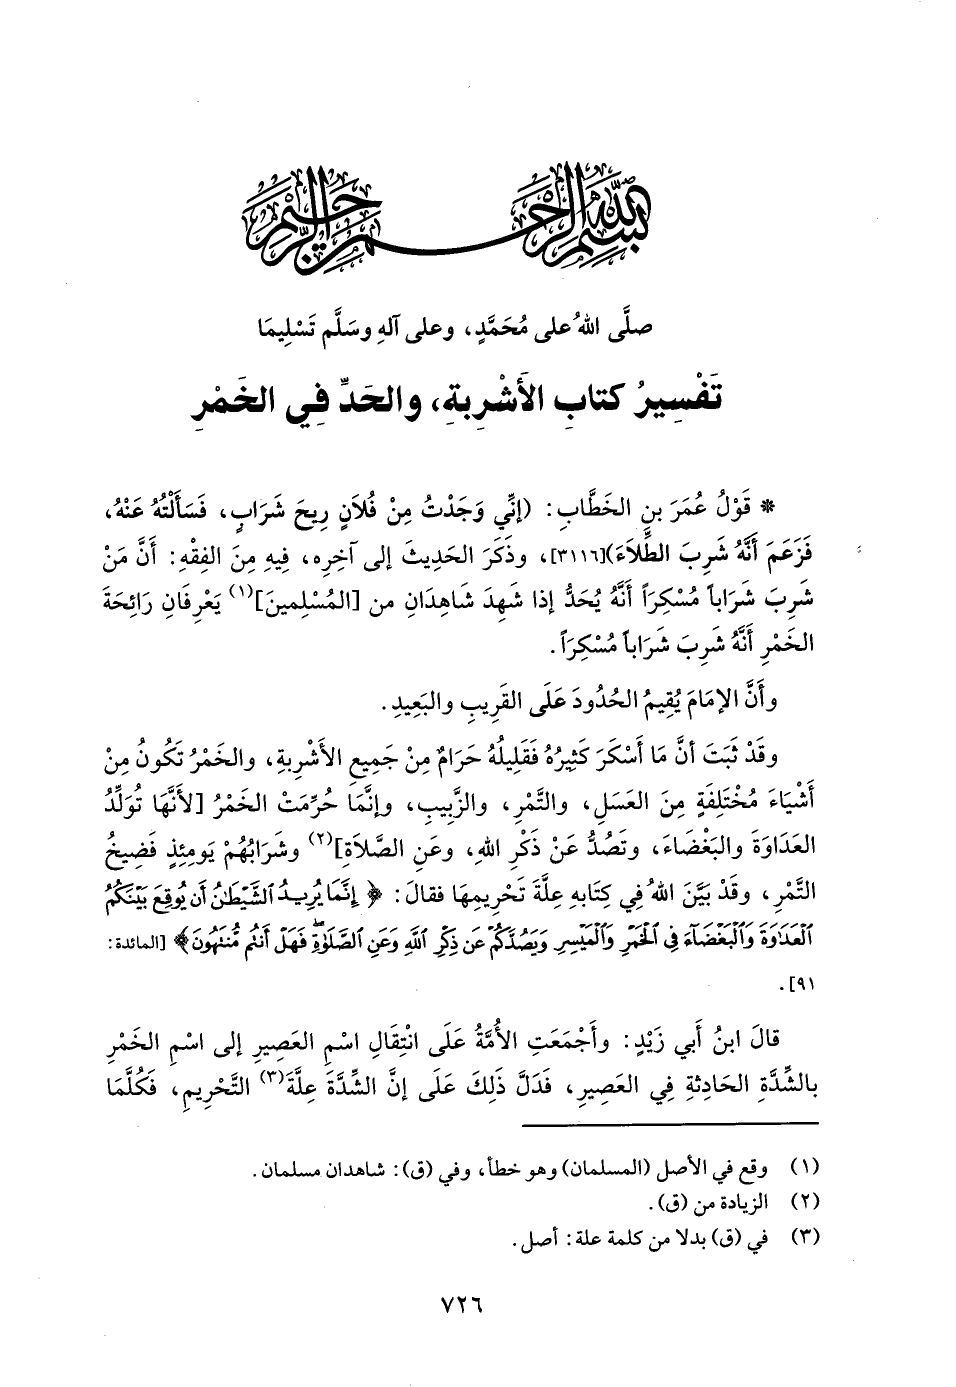 بسم الله الرحمن الرحيم
صلَّى اللهُ على مُحَمَّدٍ، وعلى آلهِ وسَلَّم تَسْلِيمَا
تَفْسِيرُ كتابِ الأَشْرِبةِ، والحَدِّ فِي الخَمْرِ
* قَوْلُ عُمَرَ بنِ الخَطَّابِ: (إنِّي وَجَدْتُ مِنْ فُلَانٍ رِيحَ شَرَابٍ، فَسَأَلْتُهُ عَنْهُ،
فَزَعَمَ أَنَّهُ شَرِبَ الطِّلَاءَ)[٣١١٦]، وذَكَرَ الحَدِيثَ إلى آخِرِه، فِيهِ مِنَ الفِقْهِ: أَنَّ مَنْ
شَرِبَ شَرَاباً مُسْكِرَاً أَنَّهُ يُحَدُّ إذا شَهِدَ شَاهِدَانِ من [المُسْلِمينَ](١) يَعْرِفَانِ رَائِحَةَ
الخَمْرِ أَنَّهُ شَرِبَ شَرَاباً مُسْكِرَاً.
وأَنَّ الإمَامَ يُقِيمُ الحُدُودَ عَلَى القَرِيبِ والبَعِيدِ.
وقَدْ ثَبَتَ أنَّ مَا أَسْكَرَ كَثِيرُهُ فَقَلِيلُهُ حَرَامٌ مِنْ جَمِيعِ الأَشْرِبةِ، والخَمْرُ تَكُونُ مِنْ
أَشْيَاءَ مُخْتَلِفَةٍ مِنَ العَسَلِ، والتَّمْرِ، والزَّبِيبِ، وإنَّمَا حُرِّمَتْ الخَمْرُ [لأَنَّهَا تُولِّدُ
العَدَاوَةَ والبَغْضَاءَ، وتَصُدُّ عَنْ ذَكْرِ اللهِ، وعَنِ الصَّلاَةِ](٢) وشَرَابُهُمْ يَومِئِذٍ فَضِيخُ
التَّمْرِ، وقَدْ بَيَّنَ اللهُ فِي كِتَابهِ عِلَّةَ تَحْرِيمِهَا فقالَ: ﴿ إِنَّمَا يُرِيدُ الشَّيْطَانُ أَن يُوقِعَ بَيْنَكُمُ
الْعَدَاوَةَ وَالْبَغْضَاءَ فِي الْخَمْرِ وَالْمَيْسِرِ وَيَصُدَّكُمْ عَن ذِكْرِ اللَّهِ وَعَنِ الصَّلَوٰةِ ۖ فَهَلْ أَنتُم مُّنتَهُونَ ﴾ [المائدة:
٩١].
قالَ ابنُ أَبي زَيْدٍ: وأَجْمَعَتِ الأُمَّةُ عَلَى انْتِقَالِ اسْمِ العَصِيرِ إلى اسْمِ الخَمْرِ
بالشِّدَّةِ الحَادِثةِ فِي العَصِيرِ، فَدَلَّ ذَلِكَ عَلَى إنَّ الشِّدَّةَ عِلَّةَ(٣) التَّحْرِيمِ، فَكُلَّمَا
(١) وقع في الأصل (المسلمان) وهو خطأ، وفي (ق): شاهدان مسلمان.
(٢) الزيادة من (ق).
(٣) في (ق) بدلا من كلمة علة: أصل.
٧٢٦